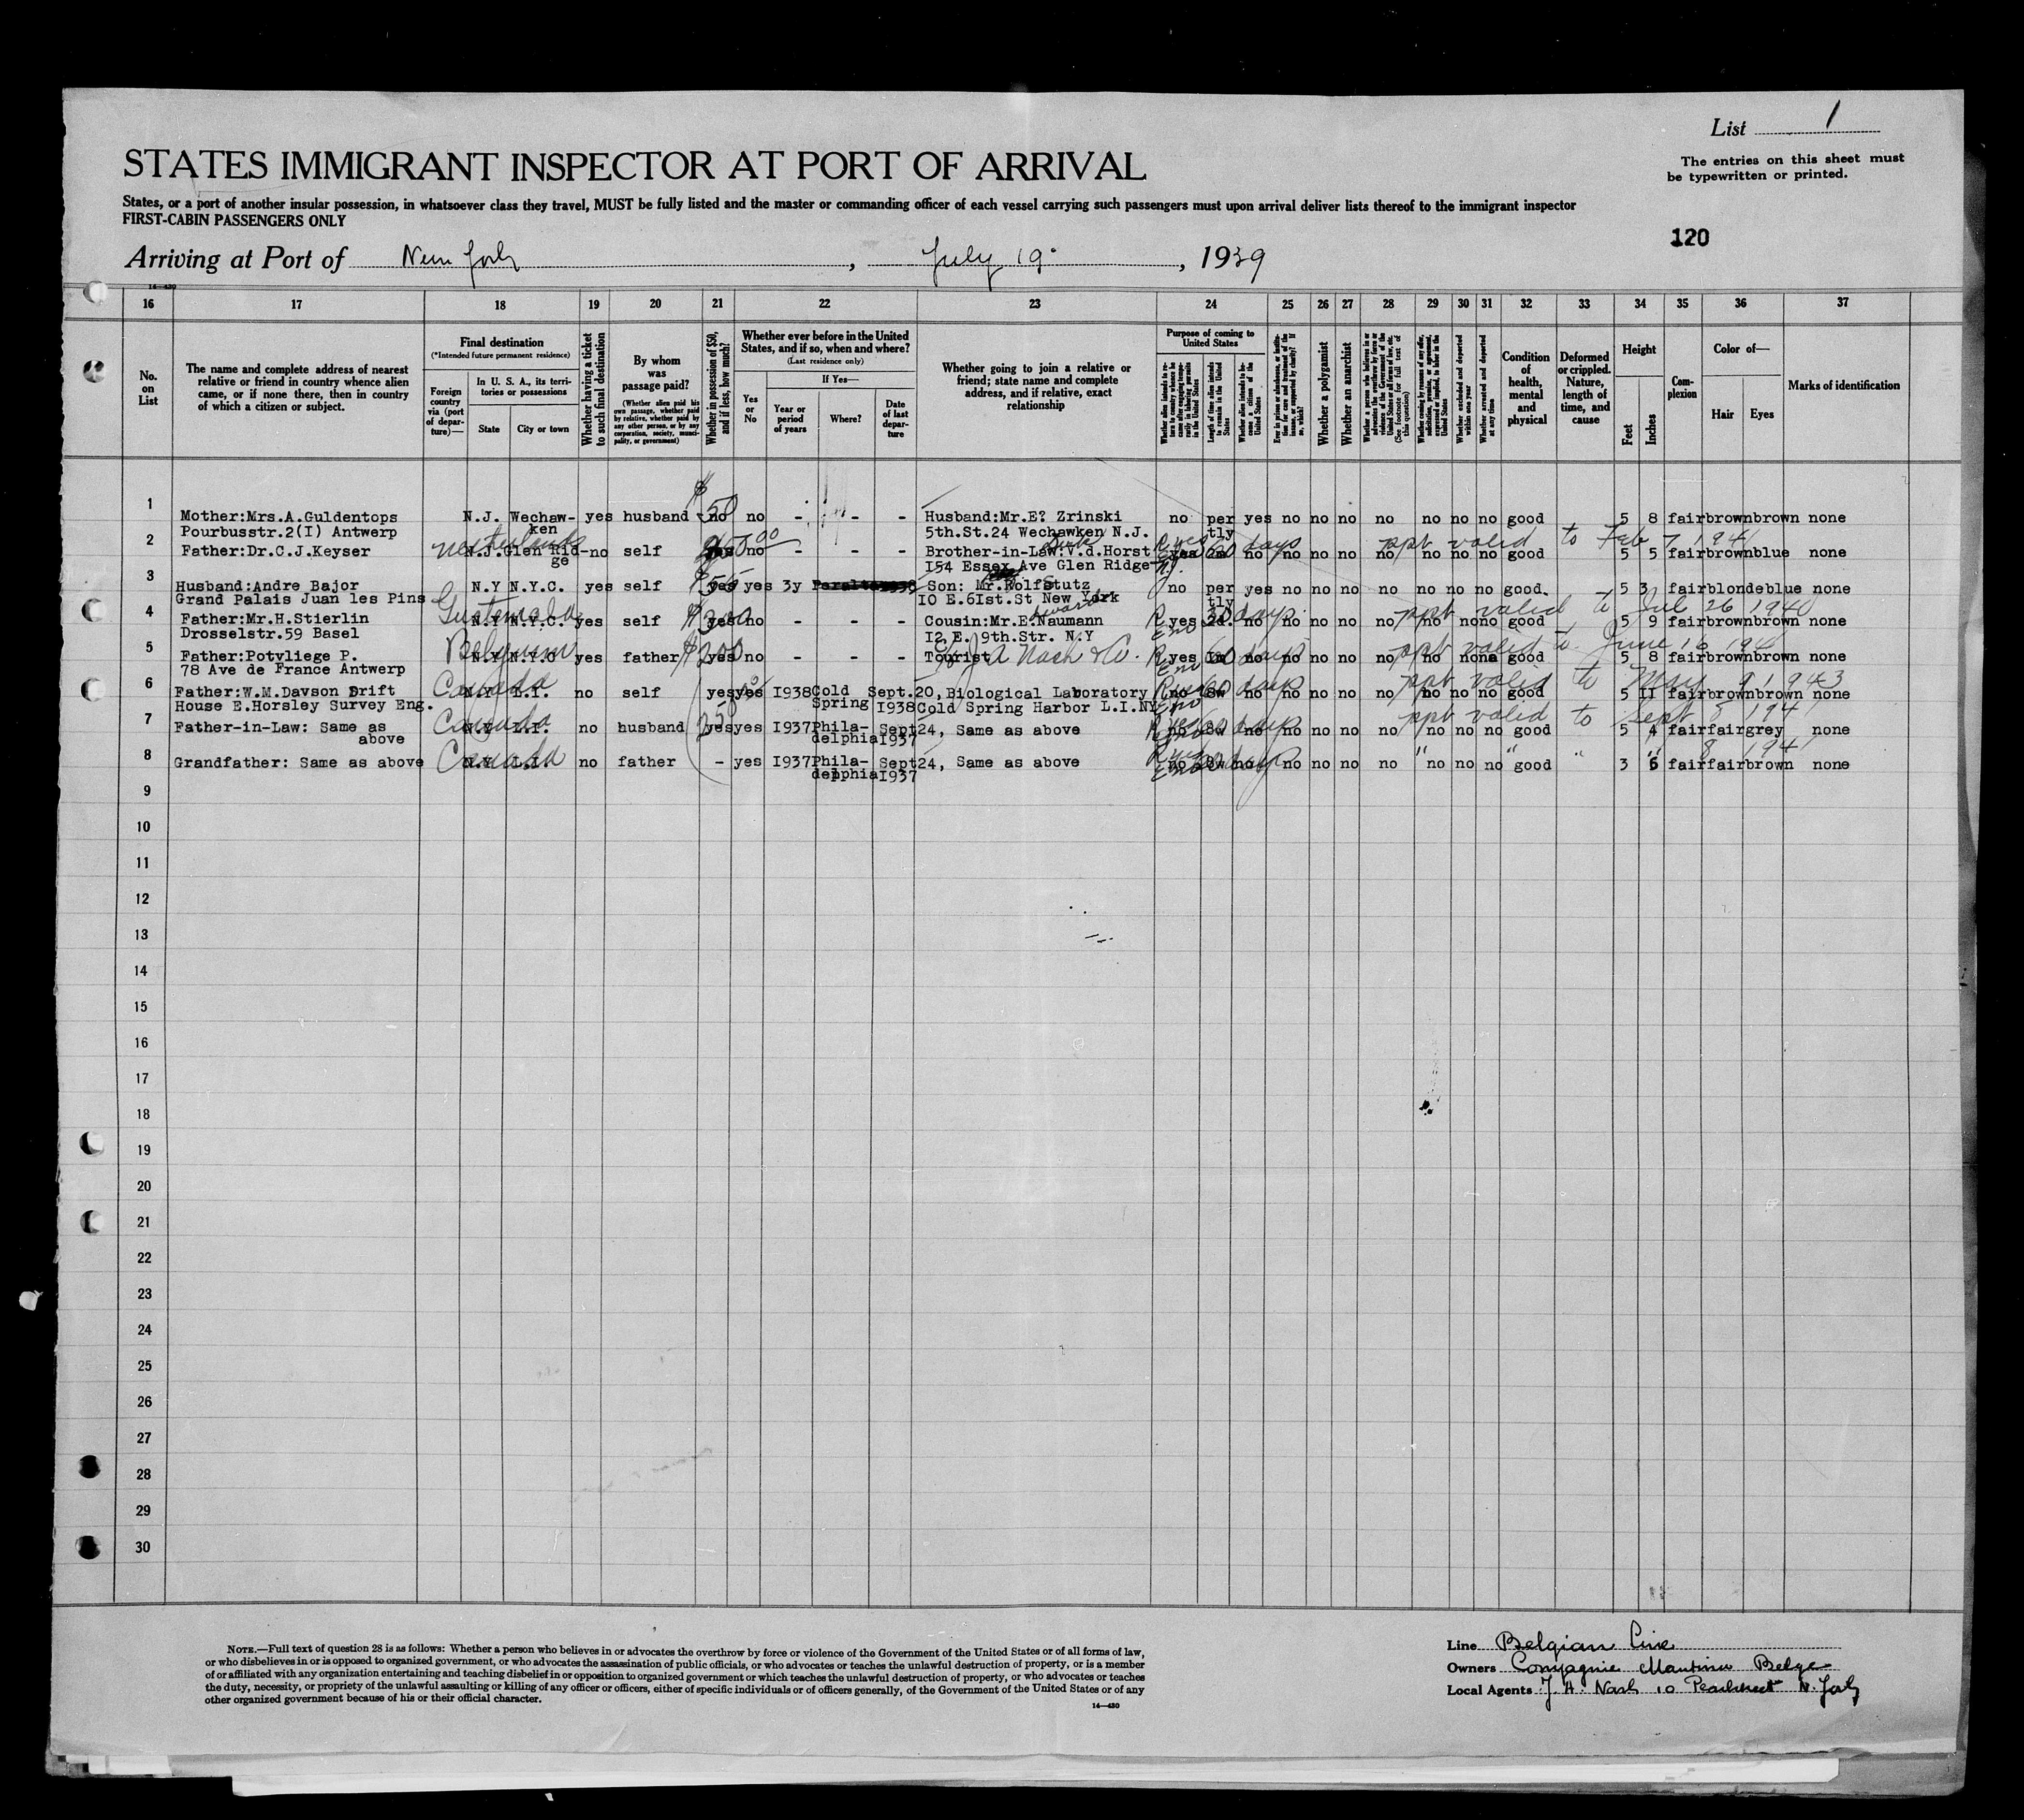 List 1
The entries on this sheet must
be typewritten or printed.
STATES IMMIGRANT INSPECTOR AT PORT OF ARRIVAL
States, or a port of another insular possession, in whatsoever class they travel, MUST be fully listed and the master or commanding officer of each vessel carrying such passengers must upon arrival deliver lists thereof to the immigrant inspector
FIRST-CABIN PASSENGERS ONLY
120
Arriving at Port of New York, July 19, 1939
14-430
16 17 18 19 20 21 22 23 24 25 26 27 28 29 30 31 32 33 34 35 36 37
No. on List
The name and complete address of nearest relative or friend in country whence alien came, or if none there, then in country of which a citizen or subject.
Final destination
(*Intended future permanent residence)
Foreign country via (port of departure)—
In U. S. A., its territories or possessions
State
City or town
Whether having a ticket to such final destination
By whom was passage paid?
(Whether alien paid his own passage, whether paid by relative, whether paid by any other person, or by any corporation, society, municipality, or government)
Whether in possession of $50, and if less, how much?
Whether ever before in the United States, and if so, when and where?
(Last residence only)
Yes or No
If Yes—
Year or period of years
Where?
Date of last departure
Whether going to join a relative or friend; state name and complete address, and if relative, exact relationship
Purpose of coming to United States
Length of time alien intends to remain in the United States
Whether alien intends to become a citizen of the United States
Whether a polygamist
Whether an anarchist
Whether excluded and deported within one year
Whether arrested and deported at any time
Condition of health, mental and physical
Deformed or crippled. Nature, length of time, and cause
Height
Feet
Inches
Complexion
Color of—
Hair
Eyes
Marks of identification
1 Mother:Mrs.A.Guldentops N.J. Wechaw- yes husband no $50 no - - - Husband:Mr.E? Zrinski no per yes no no no no no no no good 5 8 fair brown brown none
Pourbusstr.2(I) Antwerp ken 5th.St.24 Wechawken N.J. tly
2 Father:Dr.C.J.Keyser Netherlands N.J. Glen Rid- no self yes no - - - Brother-in-Law:V.d.Horst yes 60 days no no no no no no no no good ppt valid to Feb 7 1941 5 5 fair brown blue none
ge I54 Essex Ave Glen Ridge N.J.
3 Husband:Andre Bajor N.Y N.Y.C. yes self yes yes 3y Son: Mr.Rolf Stutz no per yes no no no no no no no good. 5 3 fair blonde blue none
Grand Palais Juan les Pins IO E.6Ist.St New York tly
4 Father:Mr.H.Stierlin Guatemala N.Y N.Y.C. yes self $300 yes no - - - Cousin:Mr.E.Naumann yes days no no no no no no no no good ppt valid to Jul 26 1940 5 9 fair brown brown none
Drosselstr.59 Basel I2 E. 9th.Str. N.Y
5 Father:Potvliege P. Belgium N.Y N.Y.C yes father $200 yes no - - - Tourist J A Nash & Co. yes 60 days no no no no no no no no good ppt valid to June 16 5 8 fair brown brown none
78 Ave de France Antwerp
6 Father:W.M.Davson Drift Canada N.Y L.I. no self yes yes I938 Cold Sept.20, Biological Laboratory no 8w 60 days no no no no no no no no good ppt valid to May 9 1943 5 II fair brown brown none
House E.Horsley Survey Eng. Spring I938 Cold Spring Harbor L.I.NY
7 Father-in-Law: Same as Canada N.Y L.I. no husband 250 yes yes I937 Phila- Sept 24, Same as above no 8w days no no no no no no no no good ppt valid to Sept 8 1941 5 4 fair fair grey none
above delphia I937
8 Grandfather: Same as above Canada no father - yes I937 Phila- Sept 24, Same as above no 8w no no no no no no no no good " " " " 8 1941 3 6 fair fair brown none
delphia I937
9
10
11
12
13
14
15
16
17
18
19
20
21
22
23
24
25
26
27
28
29
30
NOTE.—Full text of question 28 is as follows: Whether a person who believes in or advocates the overthrow by force or violence of the Government of the United States or of all forms of law,
or who disbelieves in or is opposed to organized government, or who advocates the assassination of public officials, or who advocates or teaches the unlawful destruction of property, or is a member
of or affiliated with any organization entertaining and teaching disbelief in or opposition to organized government or which teaches the unlawful destruction of property, or who advocates or teaches
the duty, necessity, or propriety of the unlawful assaulting or killing of any officer or officers, either of specific individuals or of officers generally, of the Government of the United States or of any
other organized government because of his or their official character.
14—430
Line Belgian Line
Owners Compagnie Maritime Belge
Local Agents J. A. Nash 10 Pearlstreet N. York